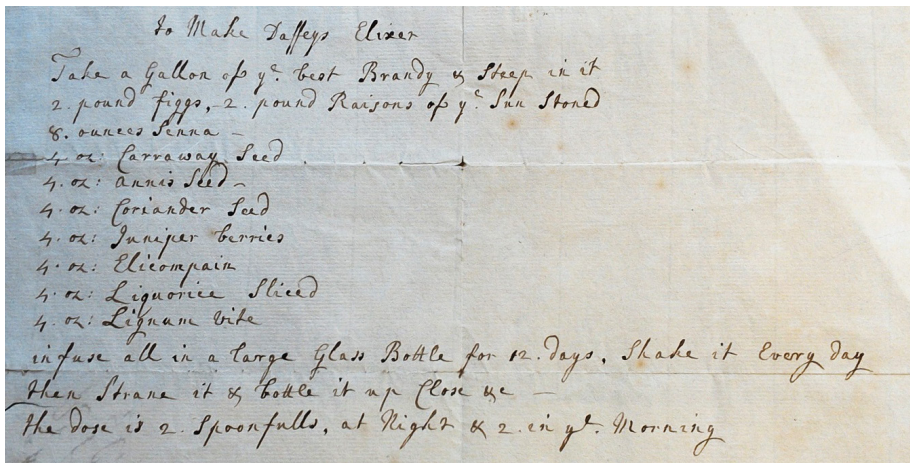 to Make Daffeys Elixer
Take a Gallon of yᵉ. best Brandy & Steep in it
2. pound figgs,-2. pound Raisons of yᵉ. Sun Stoned
8. ounces Senna -
4 oz: Carraway Seed
4. oz: annis Seed -
4. oz: Coriander Seed
4. oz: Juniper berries
4. oz: Elicompain
4. oz: Liquorice Sliced
4. oz: Lignum vite
infuse all in a large Glass Bottle for 12. days, Shake it Every day
then Strane it & bottle it up Close &c -
the dose is 2. Spoonfulls, at Night & 2. in yᵉ. Morning